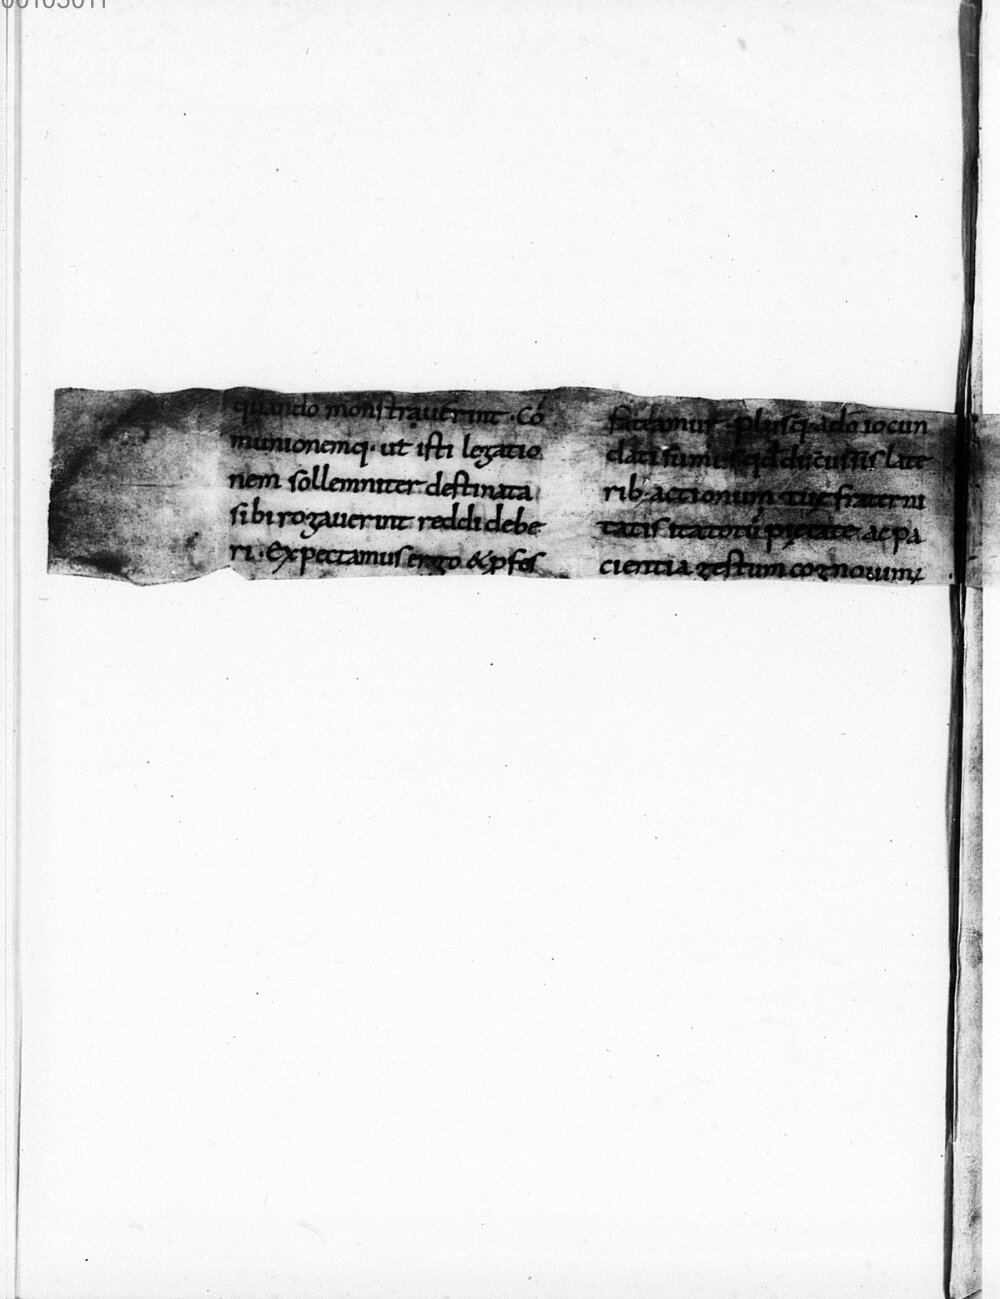 quando monstrauerint · Cō
munionemq· ut isti legatio
nem sollemniter destinata
sibi rogauerint reddi debe
ri · Expectamus ergo & p̱fes
fateamur · plusq· ado iocun
dati sumus qđ discussis latt
rib· actionum tuę fraterni
tatis ita totū pietate ac pa
cientia gestum cognouimꝰ